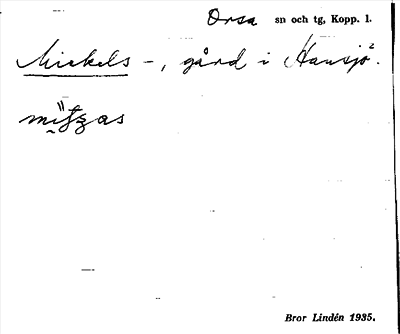 Orsa sn och tg, Kopp. l.
Mickels -, gård i Hansjö².
Bror Lindén 1935.